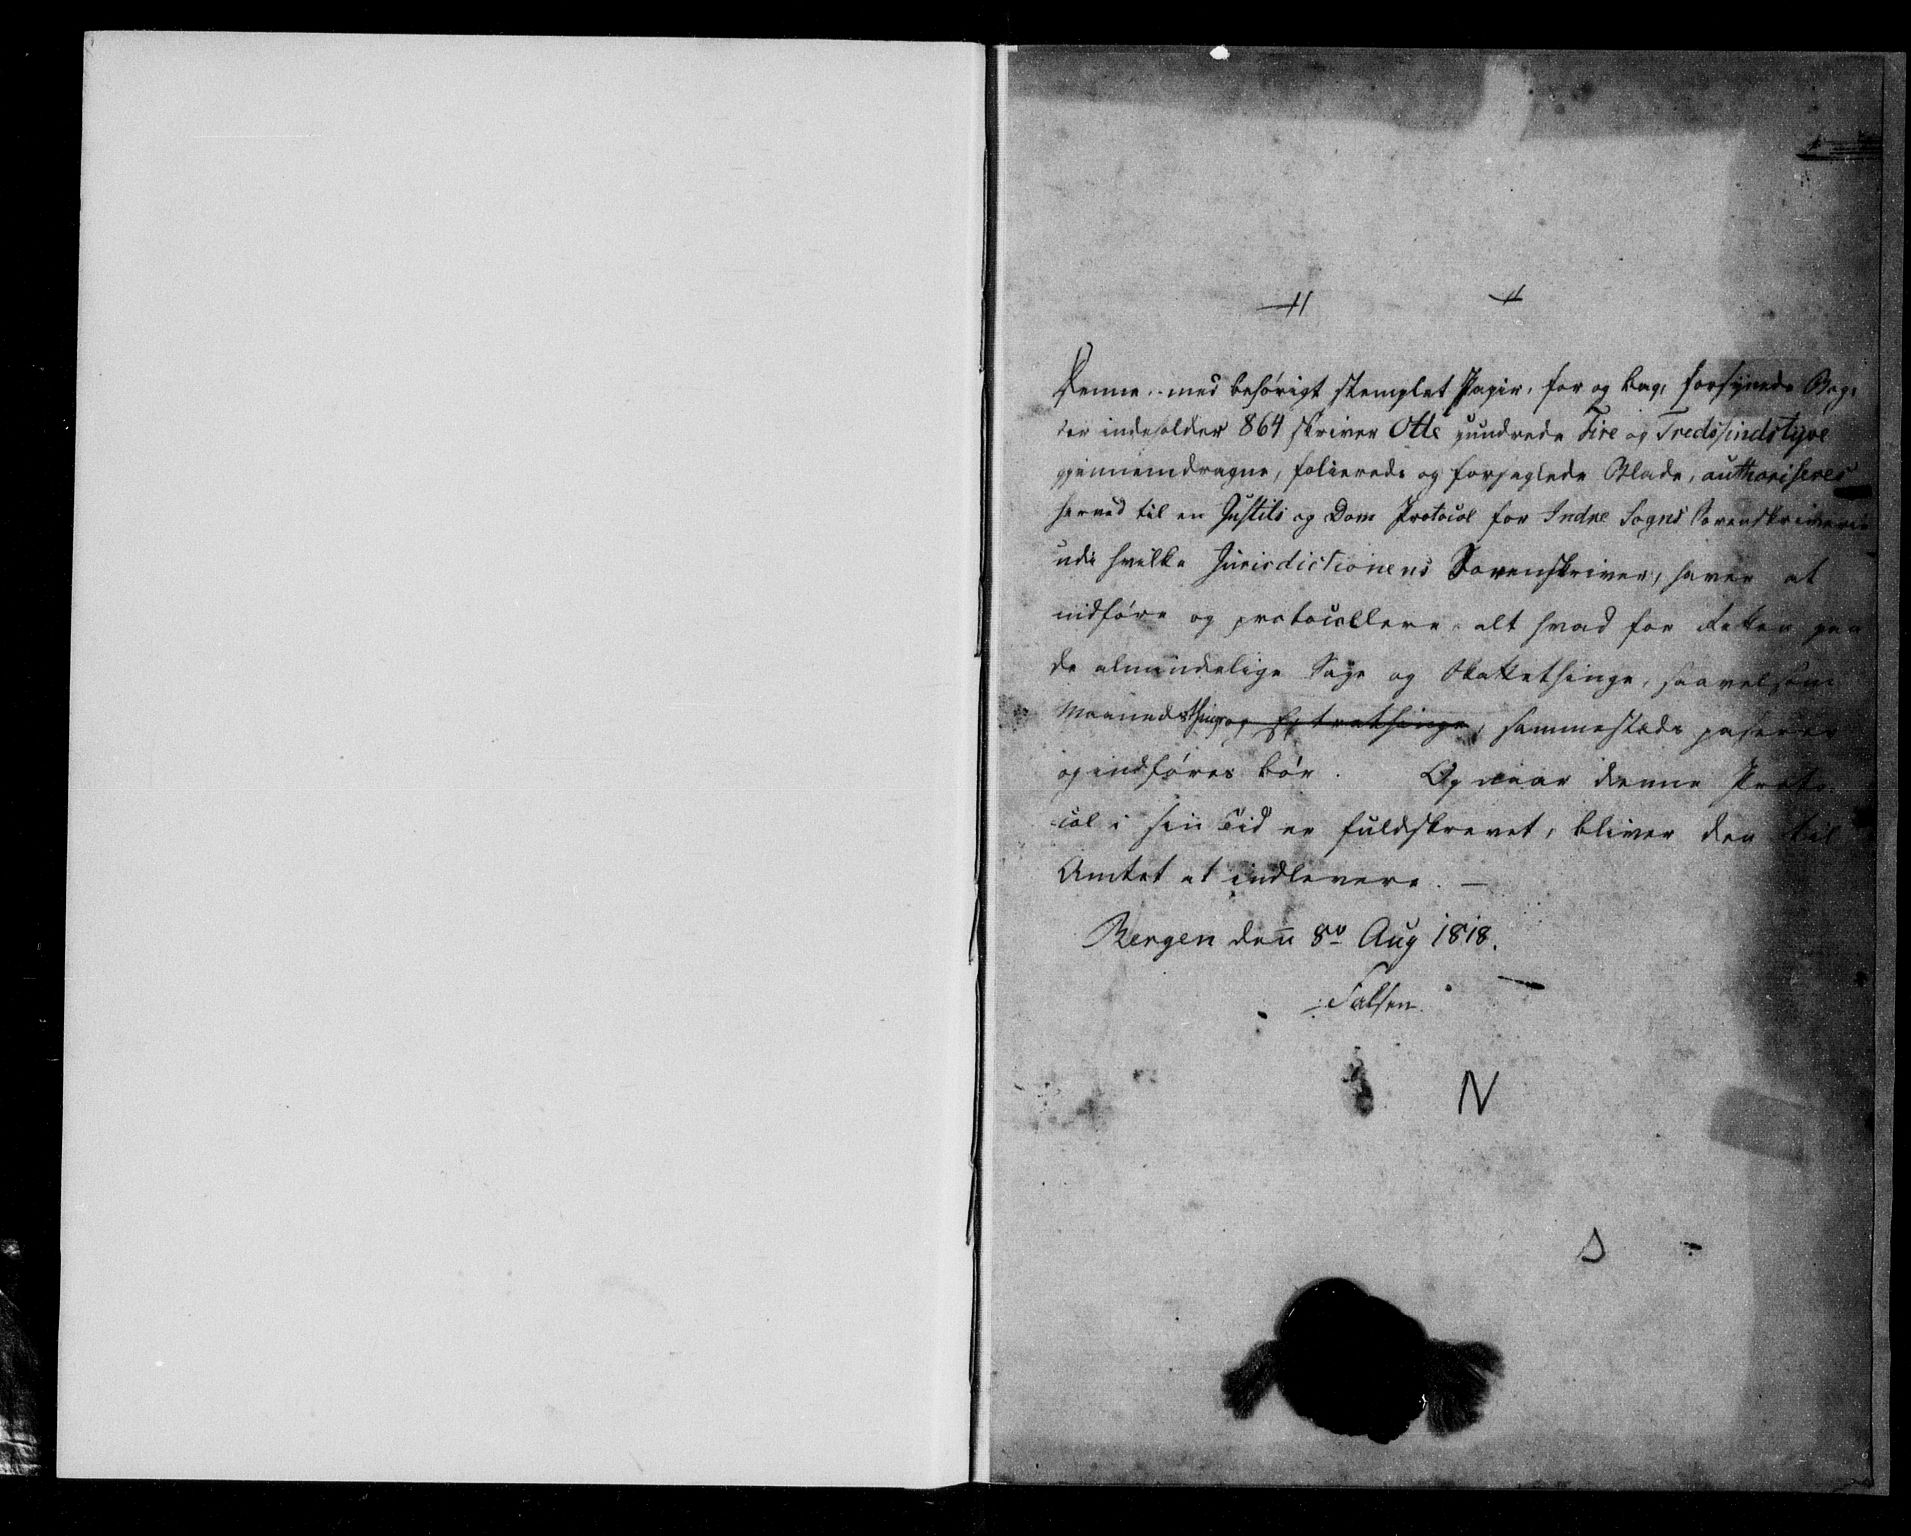 Denne, med behörigt stemplet Papir, for og bag, forsynede Bog,
der indeholder 864 skriver Otte hundrede Fire og Tredssindstyve
gjennemdragne, folierede og forseglede Blade, authoriseres
herved til en Justits og Dom Protocol for Indre Sogns Sorenskriverie
udi hvilke Jurisdictionens Sorenskriver, haver at
indføre og protocollere alt hvad for Retten paa
de almindelige Sage og Skattethinge, saavelsom
Maanedsthing og Extrathinge, sammesteds paserer
og indføres bör. Og naar denne Proto-
col i sin Tid er fuldskrevet, bliver den til
Amtet at indlevere. —
Bergen den 8de Aug 1818.
Falsen
N
S